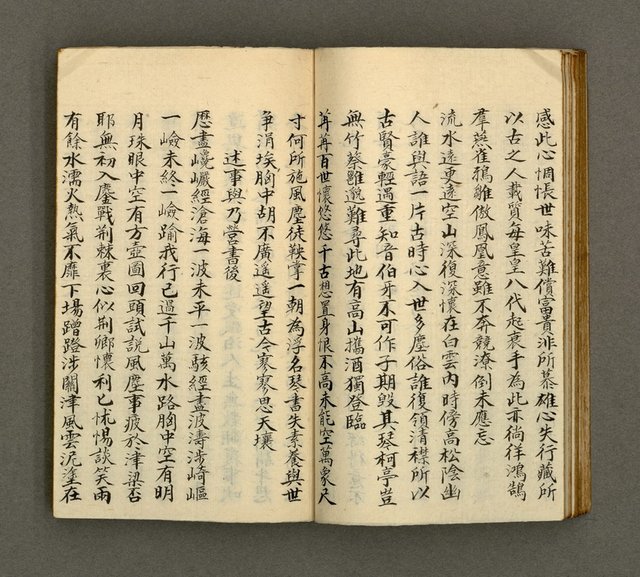 感此心惆悵世味苦難償富貴非所慕雄心失行藏所
以古之人載質每皇皇八代起衰手為此亦徜徉鴻鵠
羣燕雀鴉雛傲鳳凰意雖不奔競潦倒未應忘
流水遠更遠空山深復深懷在白雲內時傍高松陰幽
人誰與語一片古時心入世多塵俗誰復領清襟所以
古賢豪輕過重知音伯牙不可作子期毀其琴柯亭豈
無竹蔡雖邈難尋此地有高山攜酒獨登臨
苒苒百世懷悠悠千古想置身恨不高未能空萬象尺
寸何所施風塵徒鞅掌一朝為浮名琴書失素養與世
爭涓埃胸中胡不廣遙遙望古今寥寥思天壤
述事與乃營書後
歷盡巉巖經滄海一波未平一波駭經盡波濤涉崎嶇
一嶮未終一嶮踰我行已過千山萬水路胸中空有明
月珠眼中空有方壺圖回頭試說風塵事疲於津梁否
耶無初入鏖戰荆棘裏心似荆卿懷利匕怵惕談笑雨
有餘水濡火熱氣不靡下場蹭蹬涉關津風雲泥塗在